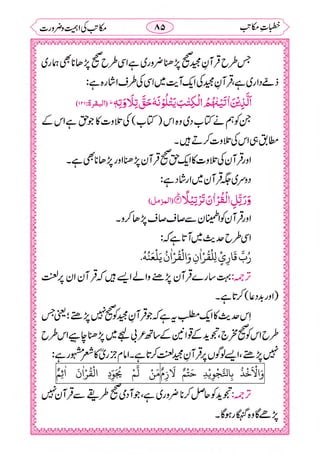 خطباتِ مکاتب ۸۵ مکاتب کی اہمیت و ضرورت
جس طرح قرآنِ مجید صحیح پڑھنا ضروری ہے اسی طرح صحیح پڑھانا بھی ہماری
ذمے داری ہے، قرآنِ مجید کی ایک آیت میں اسی طرف اشارہ ہے:
اَلَّذِيْنَ اٰتَيْنٰهُمُ الْكِتٰبَ يَتْلُوْنَهٗ حَقَّ تِلَاوَتِهٖ (البقرة: ۱۲۱)
ہم نے جن کو کتاب دی وہ اس (کتاب) کی تلاوت کا جو حق ہے اس کے
مطابق ہی اس کی تلاوت کرتے ہیں۔
اور قرآن کی تلاوت کا ایک حق صحیح قرآن پڑھنا اور پڑھانا بھی ہے۔
دوسری جگہ قرآن میں ارشاد ہے:
وَرَتِّلِ الْقُرْاٰنَ تَرْتِيْلًا (المزمل)
اور قرآن کو اطمینان سے صاف صاف پڑھا کرو۔
اسی طرح حدیث میں آتا ہے کہ:
رُبَّ قَارِئٍ لِلْقُرْاٰنِ وَالْقُرْاٰنُ يَلْعَنُهُ.
ترجمہ: بہت سارے قرآن پڑھنے والے ایسے ہیں کہ قرآن ان پر لعنت
(اور بددعا) کرتا ہے۔
اس حدیث کا ایک مطلب یہ ہے کہ جو قرآنِ مجید کو صحیح نہیں پڑھتے؛ یعنی جس
طرح اس کو صحیح مخرج، تجوید کے قوانین کے ساتھ عربی لہجے میں پڑھنا چاہیے اس طرح
نہیں پڑھتے، ایسے لوگوں پر قرآنِ مجید لعنت کرتا ہے۔ امام جزریؒ کا شعر مشہور ہے:
وَالْاَخْذُ بِالتَّجْوِيْدِ حَتْمٌ لَازِمٌ مَنْ لَّمْ يُجَوِّدِ الْقُرْاٰنَ اٰثِمٌ
ترجمہ: تجوید کو حاصل کرنا ضروری ہے، جو آدمی صحیح طریقے سے قرآن نہیں
پڑھے گا وہ گنہگار ہوگا۔